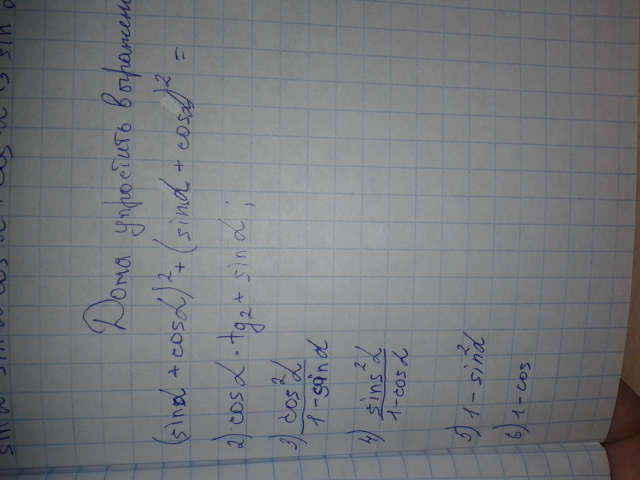 Дома упростить выражен
(sinα + cosα)² + (sinα + cosα)² =
2) cosα · tg₂ + sinα;
3) cos²α / 1 - sinα
4) sins²α / 1 - cosα
5) 1 - sin²α
6) 1 - cos